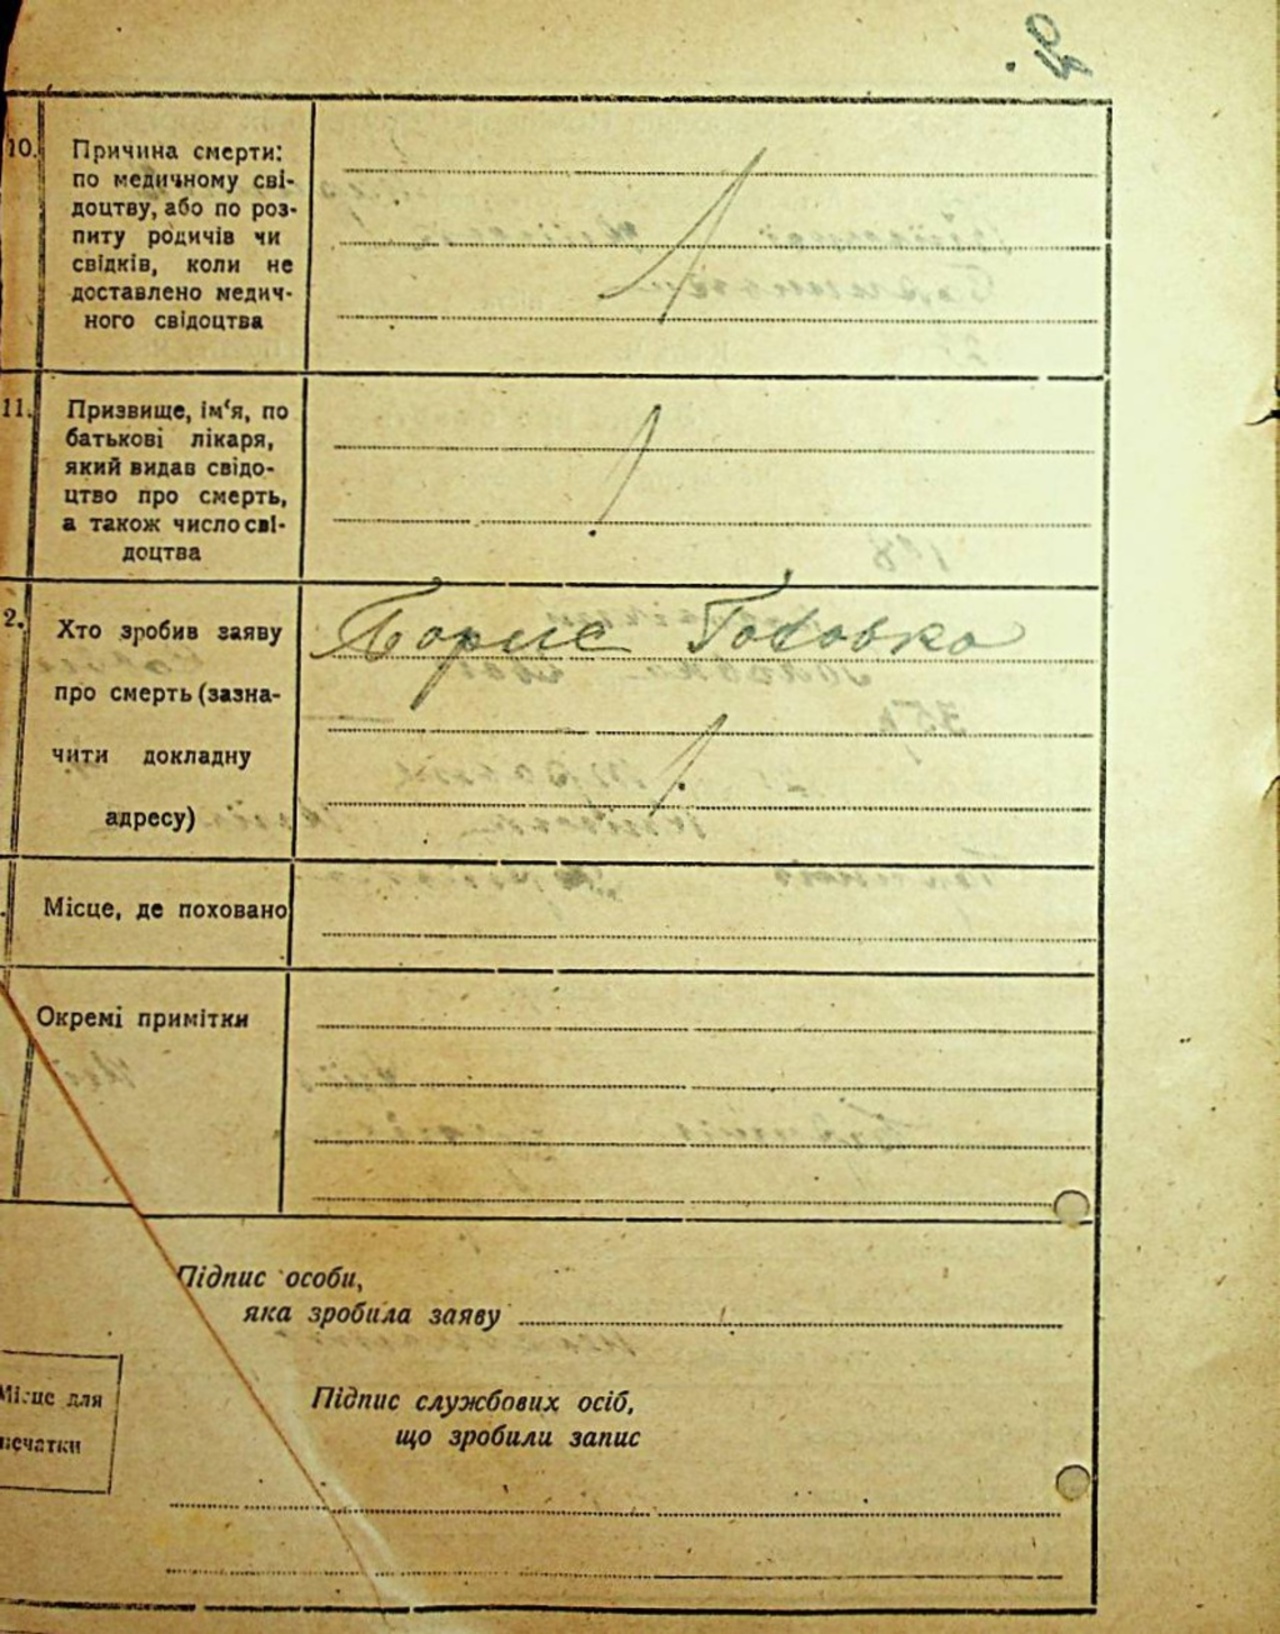 10.
Причина смерти:
по медичному сві-
доцтву, або по роз-
питу родичів чи
свідків, коли не
доставлено медич-
ного свідоцтва
11.
Призвище, ім‘я, по
батькові лікаря,
який видав свідо-
цтво про смерть,
а також число сві-
доцтва
2.
Хто зробив заяву
про смерть (зазна-
чити докладну
адресу)
Борис
Місце, де поховано
Окремі примітки
Підпис особи,
яка зробила заяву
Місце для
печатки
Підпис службових осіб,
що зробили запис